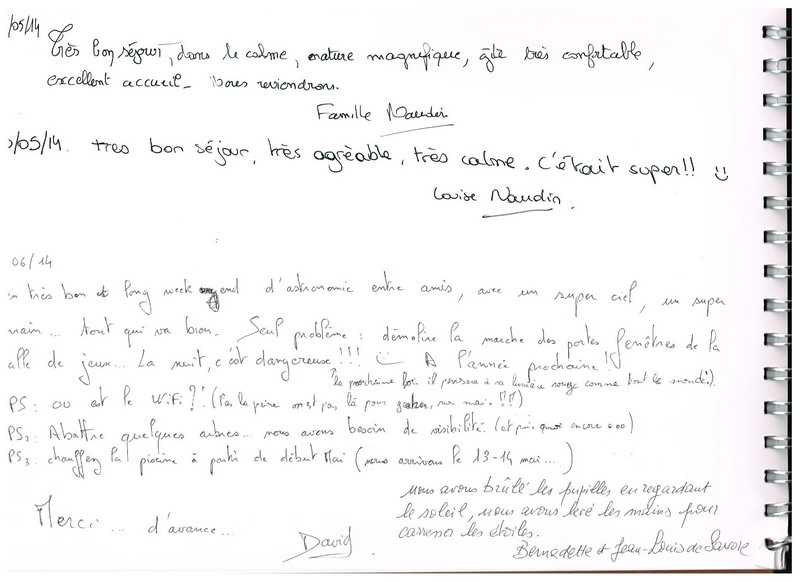 /05/14
Très bon séjour, dans le calme, nature magnifique, gîte très confortable,
excellent accueil_ Nous reviendrons.
Famille Naudin
/05/14. tres bon séjour, très agréable, très calme. C'était super!!
Louise Naudin.
06/14
n très bon et long week end d'astronomie entre amis, avec un super ciel, un super
main... tout qui va bien. Seul problème : démolire la marche des portes fenêtres de la
alle de jeux... La nuit, c'est dangereuse!!! A l'année prochaine!
La prochaine fois il pensera à sa lumière rouge comme tout le monde!)
PS: ou est le WiFi?! (Pas la peine on est pas là pour mais!!)
PS2: Abattre quelques arbres... nous avons besoin de visibilité. (et puis quoi encore ooo)
PS3: chauffez la piscine à partir de début Mai (nous arrivons le 13-14 mai...)
Merci... d'avance...
David
nous avons brûlé les pupilles en regardant
le soleil, nous avons levé les mains pour
caresser les étoiles.
Bernadette et Jean-Louis de Savoie